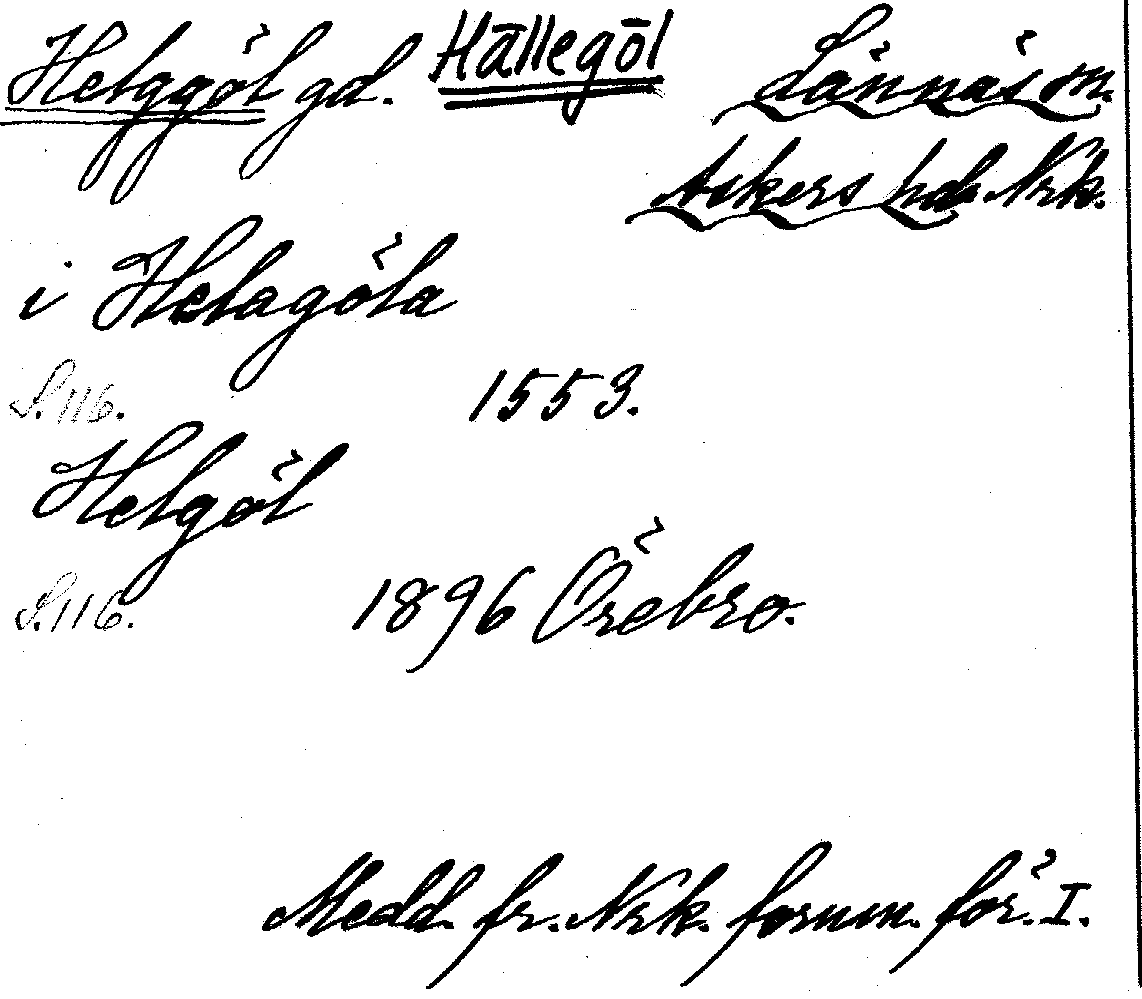 Helggöl gd. Hällegöl Lännäs sn.
Askers hd. Nrk.
i Helagöla
S. 116. 1553.
Helgöl
S. 116. 1896 Örebro.
Medd. fr. Nrk. fornm. för. I.